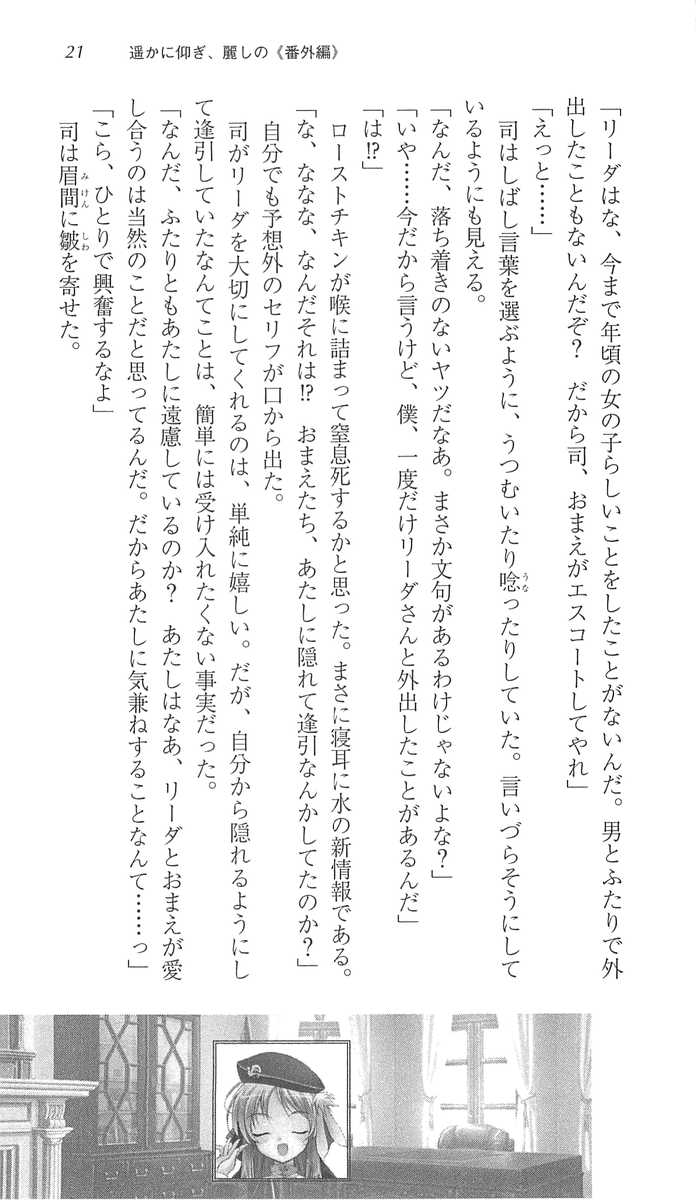 21　遥かに仰ぎ、麗しの《番外編》
「リーダはな、今まで年頃の女の子らしいことをしたことがないんだ。男とふたりで外
出したこともないんだぞ？　だから司、おまえがエスコートしてやれ」
「えっと……」
　司はしばし言葉を選ぶように、うつむいたり唸ったりしていた。言いづらそうにして
いるようにも見える。
「なんだ、落ち着きのないヤツだなあ。まさか文句があるわけじゃないよな？」
「いや……今だから言うけど、僕、一度だけリーダさんと外出したことがあるんだ」
「は!?」
　ローストチキンが喉に詰まって窒息死するかと思った。まさに寝耳に水の新情報である。
「な、ななな、なんだそれは!?　おまえたち、あたしに隠れて逢引なんかしてたのか？」
　自分でも予想外のセリフが口から出た。
　司がリーダを大切にしてくれるのは、単純に嬉しい。だが、自分から隠れるようにし
て逢引していたなんてことは、簡単には受け入れたくない事実だった。
「なんだ、ふたりともあたしに遠慮しているのか？　あたしはなあ、リーダとおまえが愛
し合うのは当然のことだと思ってるんだ。だからあたしに気兼ねすることなんて……っ」
「こら、ひとりで興奮するなよ」
　司は眉間に皺を寄せた。